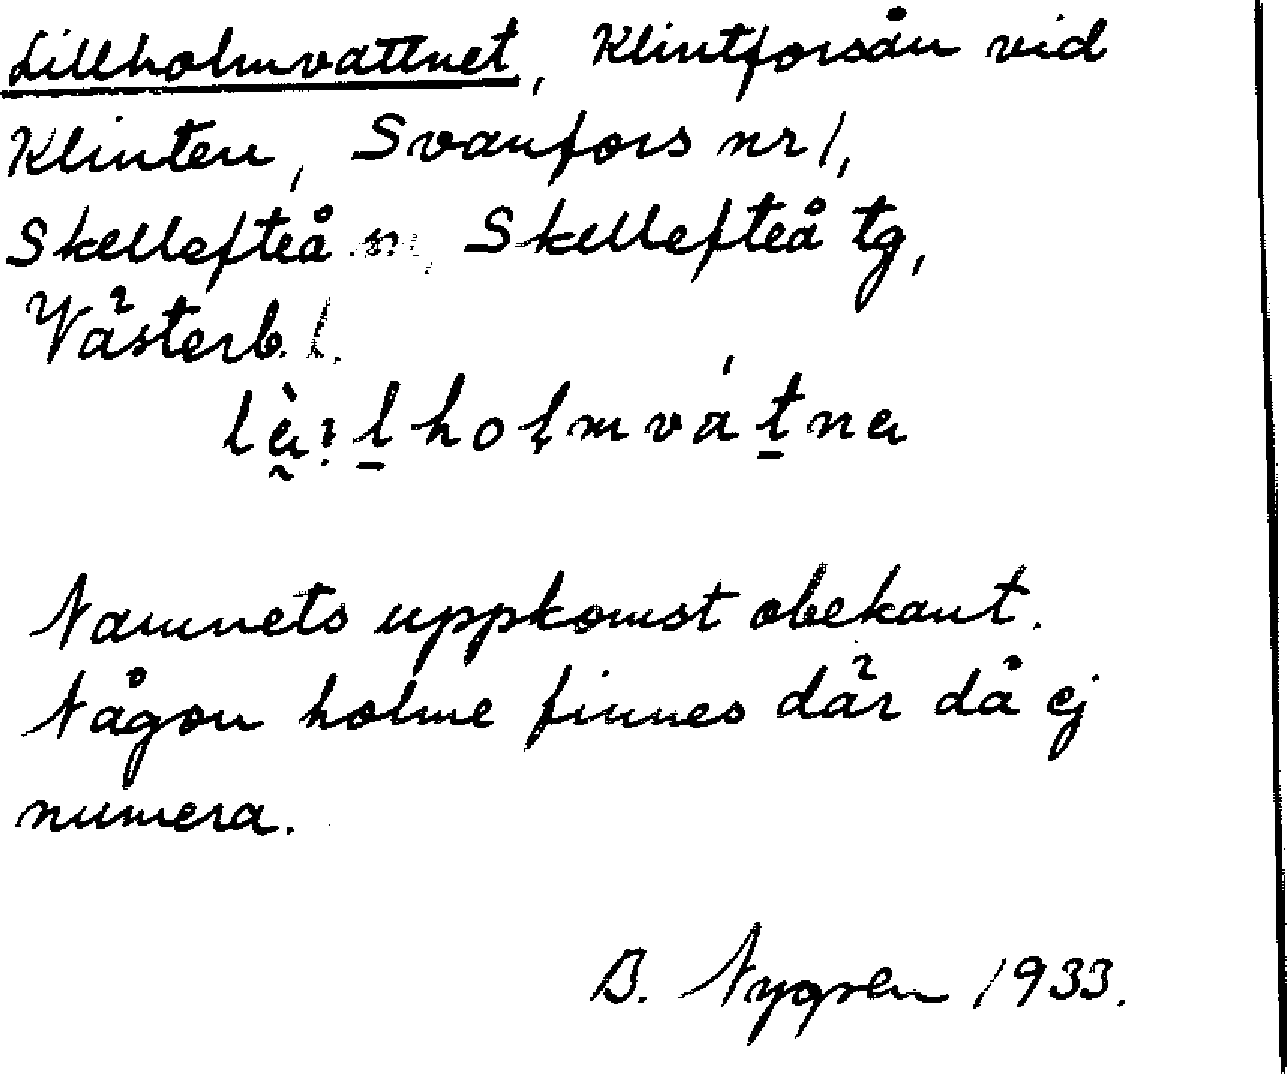 Lillholmvattnet, Klintforsån vid
Klinten, Svanfors nr 1,
Skellefteå sn, Skellefteå tg,
Västerb. l.
Namnets uppkomst obekant.
Någon holme finnes där då ej
numera.
B. Nygren 1933.